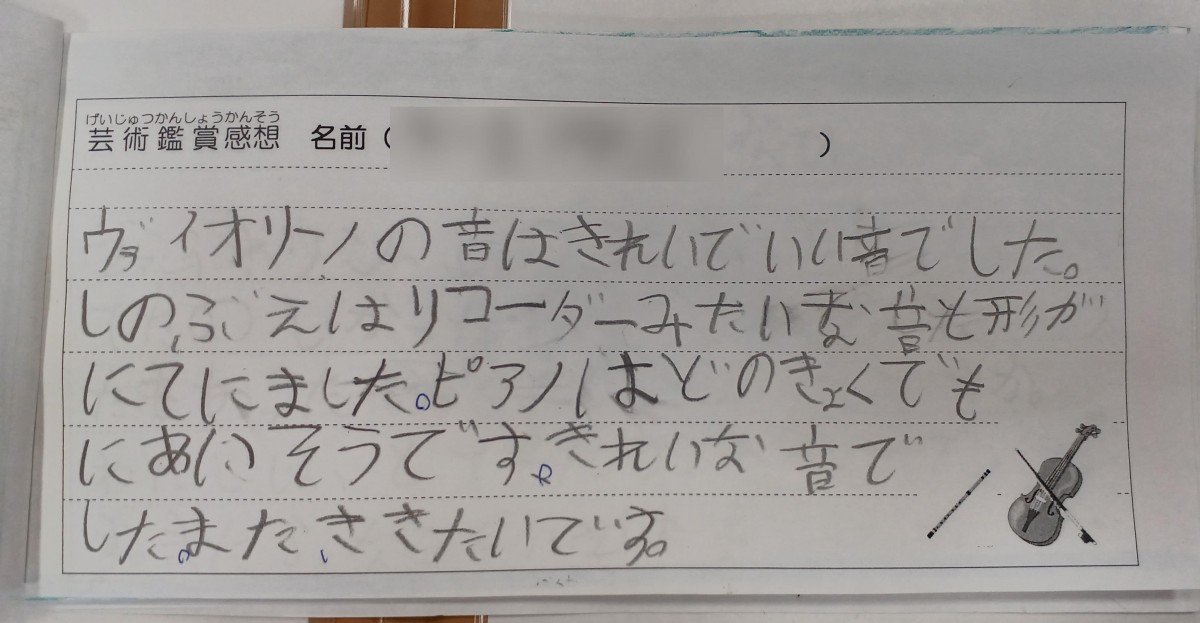 げいじゅつかんしょうかんそう
芸術鑑賞感想 名前( )
ヴァイオリーノの音はきれいでいい音でした。
しのぶえはリコーダーみたいな音も形が
にてにました。ピアノはどのきょくでも
にあいそうです。きれいな音で
した。また、ききたいです。